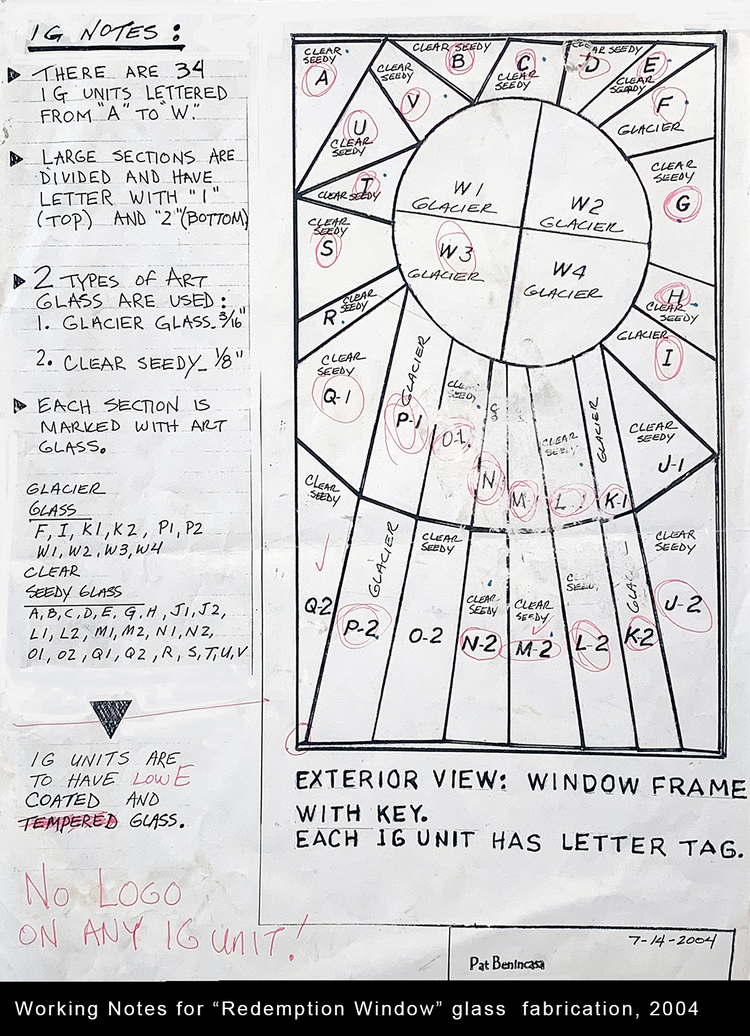 IG NOTES:
THERE ARE 34
IG UNITS LETTERED
FROM "A" TO "W."
LARGE SECTIONS ARE
DIVIDED AND HAVE
LETTER WITH "1"
(TOP) AND "2" (BOTTOM)
2 TYPES OF ART
GLASS ARE USED:
1. GLACIER GLASS_3/16"
2. CLEAR SEEDY_1/8"
EACH SECTION IS
MARKED WITH ART
GLASS.
GLACIER
GLASS
F, I, K1, K2, P1, P2
W1, W2, W3, W4
CLEAR
SEEDY GLASS
A, B, C, D, E, G, H, J1, J2,
L1, L2, M1, M2, N1, N2,
O1, O2, Q1, Q2, R, S, T, U, V
IG UNITS ARE
TO HAVE LOWE
COATED AND
TEMPERED GLASS.
NO LOGO
ON ANY IG UNIT!
CLEAR
SEEDY
A
CLEAR
SEEDY
V
CLEAR SEEDY
B
C
CLEAR
SEEDY
SEEDY
D
E
CLEAR
SEEDY
F
GLACIER
U
CLEAR
SEEDY
T
CLEAR SEEDY
CLEAR
SEEDY
G
CLEAR
SEEDY
S
W1
GLACIER
W2
GLACIER
W3
GLACIER
W4
GLACIER
H
CLEAR
SEEDY
CLEAR
SEEDY
R
GLACIER
I
CLEAR
SEEDY
Q-1
GLACIER
P-1
O-1
N
M
CLEAR
SEEDY
L
GLACIER
K-1
CLEAR
SEEDY
J-1
CLEAR
SEEDY
Q-2
GLACIER
P-2
CLEAR
SEEDY
O-2
CLEAR
SEEDY
N-2
CLEAR
SEEDY
M-2
L-2
K-2
CLEAR
SEEDY
J-2
EXTERIOR VIEW: WINDOW FRAME
WITH KEY.
EACH IG UNIT HAS LETTER TAG.
7-14-2004
Pat Benincasa
Working Notes for "Redemption Window" glass fabrication, 2004